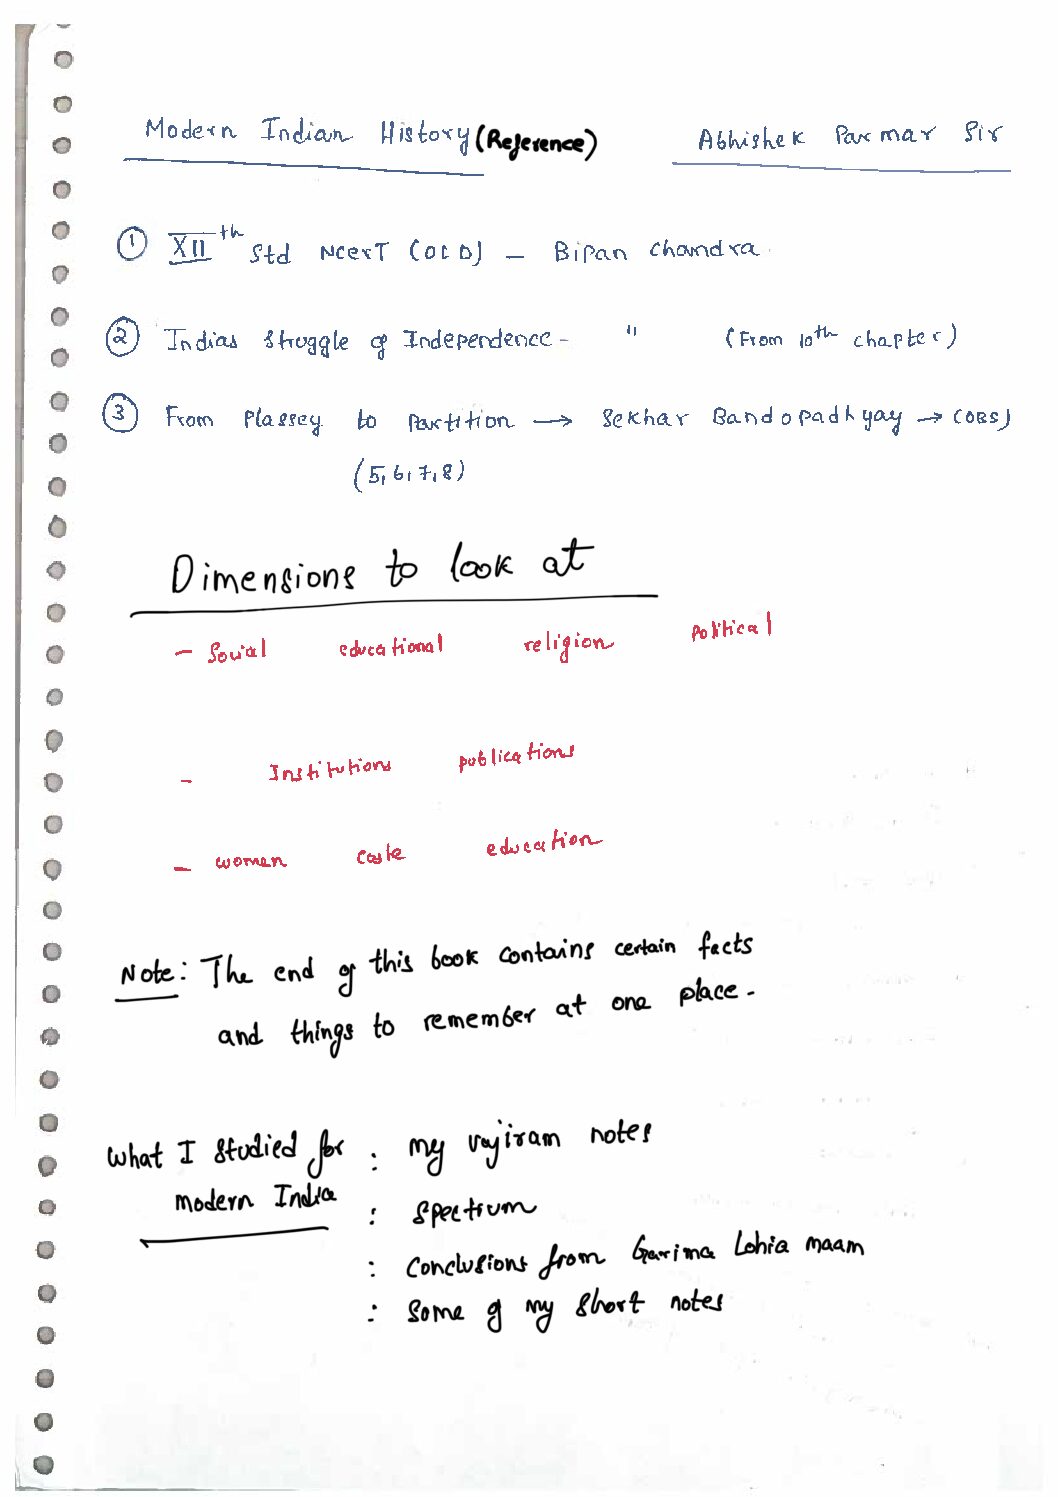 Modern Indian History (Reference) Abhishek Parmar Sir
① XIIth Std NCERT (OLD) – Bipan Chandra
② Indias Struggle of Independence – " (From 10th chapter)
③ From Plassey to Partition → Sekhar Bandopadhyay → (OBS)
(5, 6, 7, 8)
Dimensions to look at
– Social educational religion political
– Institutions publications
– women caste education
Note: The end of this book contains certain facts
and things to remember at one place.
What I studied for : my vajiram notes
modern India : spectrum
: conclusions from Garima Lohia maam
: Some of my short notes